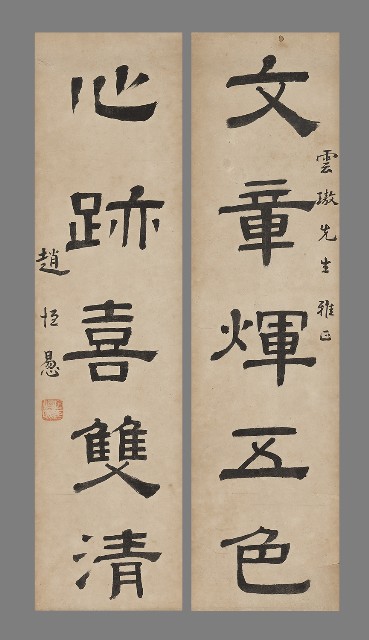 文章輝五色
雲璈先生雅正
心跡喜雙清
趙恒惖